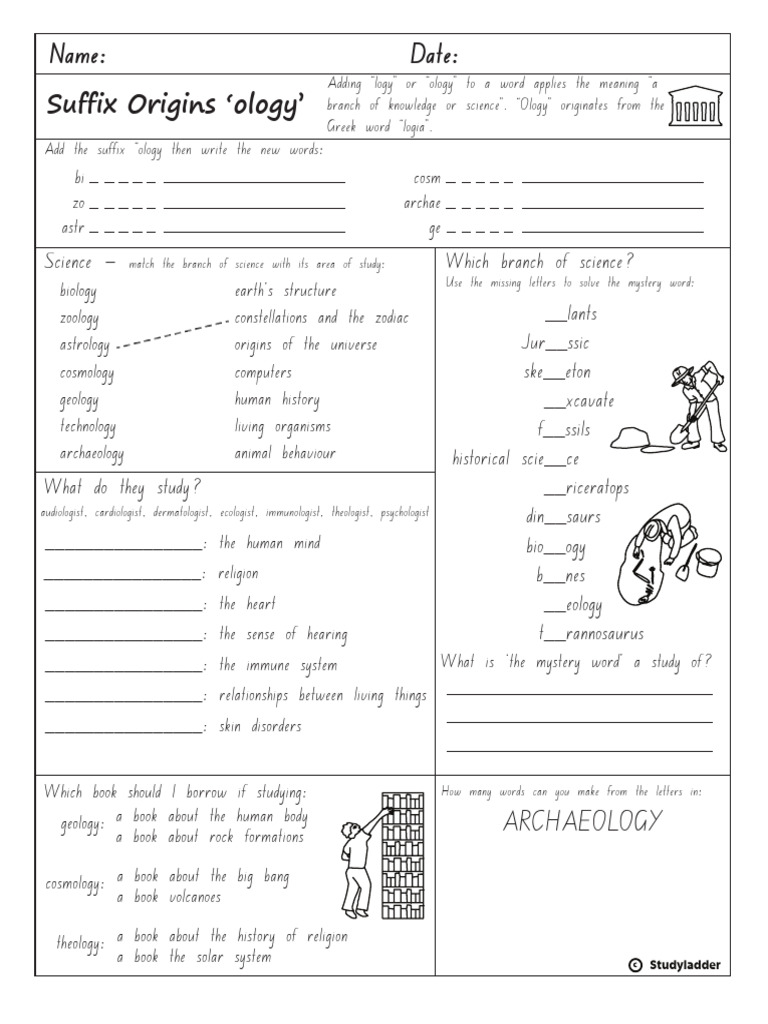 Name: Date:
Suffix Origins ‘ology’
Adding “logy” or “ology” to a word applies the meaning “a
branch of knowledge or science”. “Ology” originates from the
Greek word “logia”.
Add the suffix “ology then write the new words:
bi _ _ _ _ _ ____________________ cosm _ _ _ _ _ ____________________
zo _ _ _ _ _ ____________________ archae _ _ _ _ _ ____________________
astr _ _ _ _ _ ____________________ ge _ _ _ _ _ ____________________
Science – match the branch of science with its area of study:
biology earth's structure
zoology constellations and the zodiac
astrology origins of the universe
cosmology computers
geology human history
technology living organisms
archaeology animal behaviour
What do they study?
audiologist, cardiologist, dermatologist, ecologist, immunologist, theologist, psychologist
________________: the human mind
________________: religion
________________: the heart
________________: the sense of hearing
________________: the immune system
________________: relationships between living things
________________: skin disorders
Which branch of science?
Use the missing letters to solve the mystery word:
__lants
Jur__ssic
ske__eton
__xcavate
f__ssils
historical scie__ce
__riceratops
din__saurs
bio__ogy
b__nes
__eology
t__rannosaurus
What is ‘the mystery word’ a study of?
Which book should I borrow if studying:
geology: a book about the human body
a book about rock formations
cosmology: a book about the big bang
a book volcanoes
theology: a book about the history of religion
a book the solar system
How many words can you make from the letters in:
ARCHAEOLOGY
© Studyladder